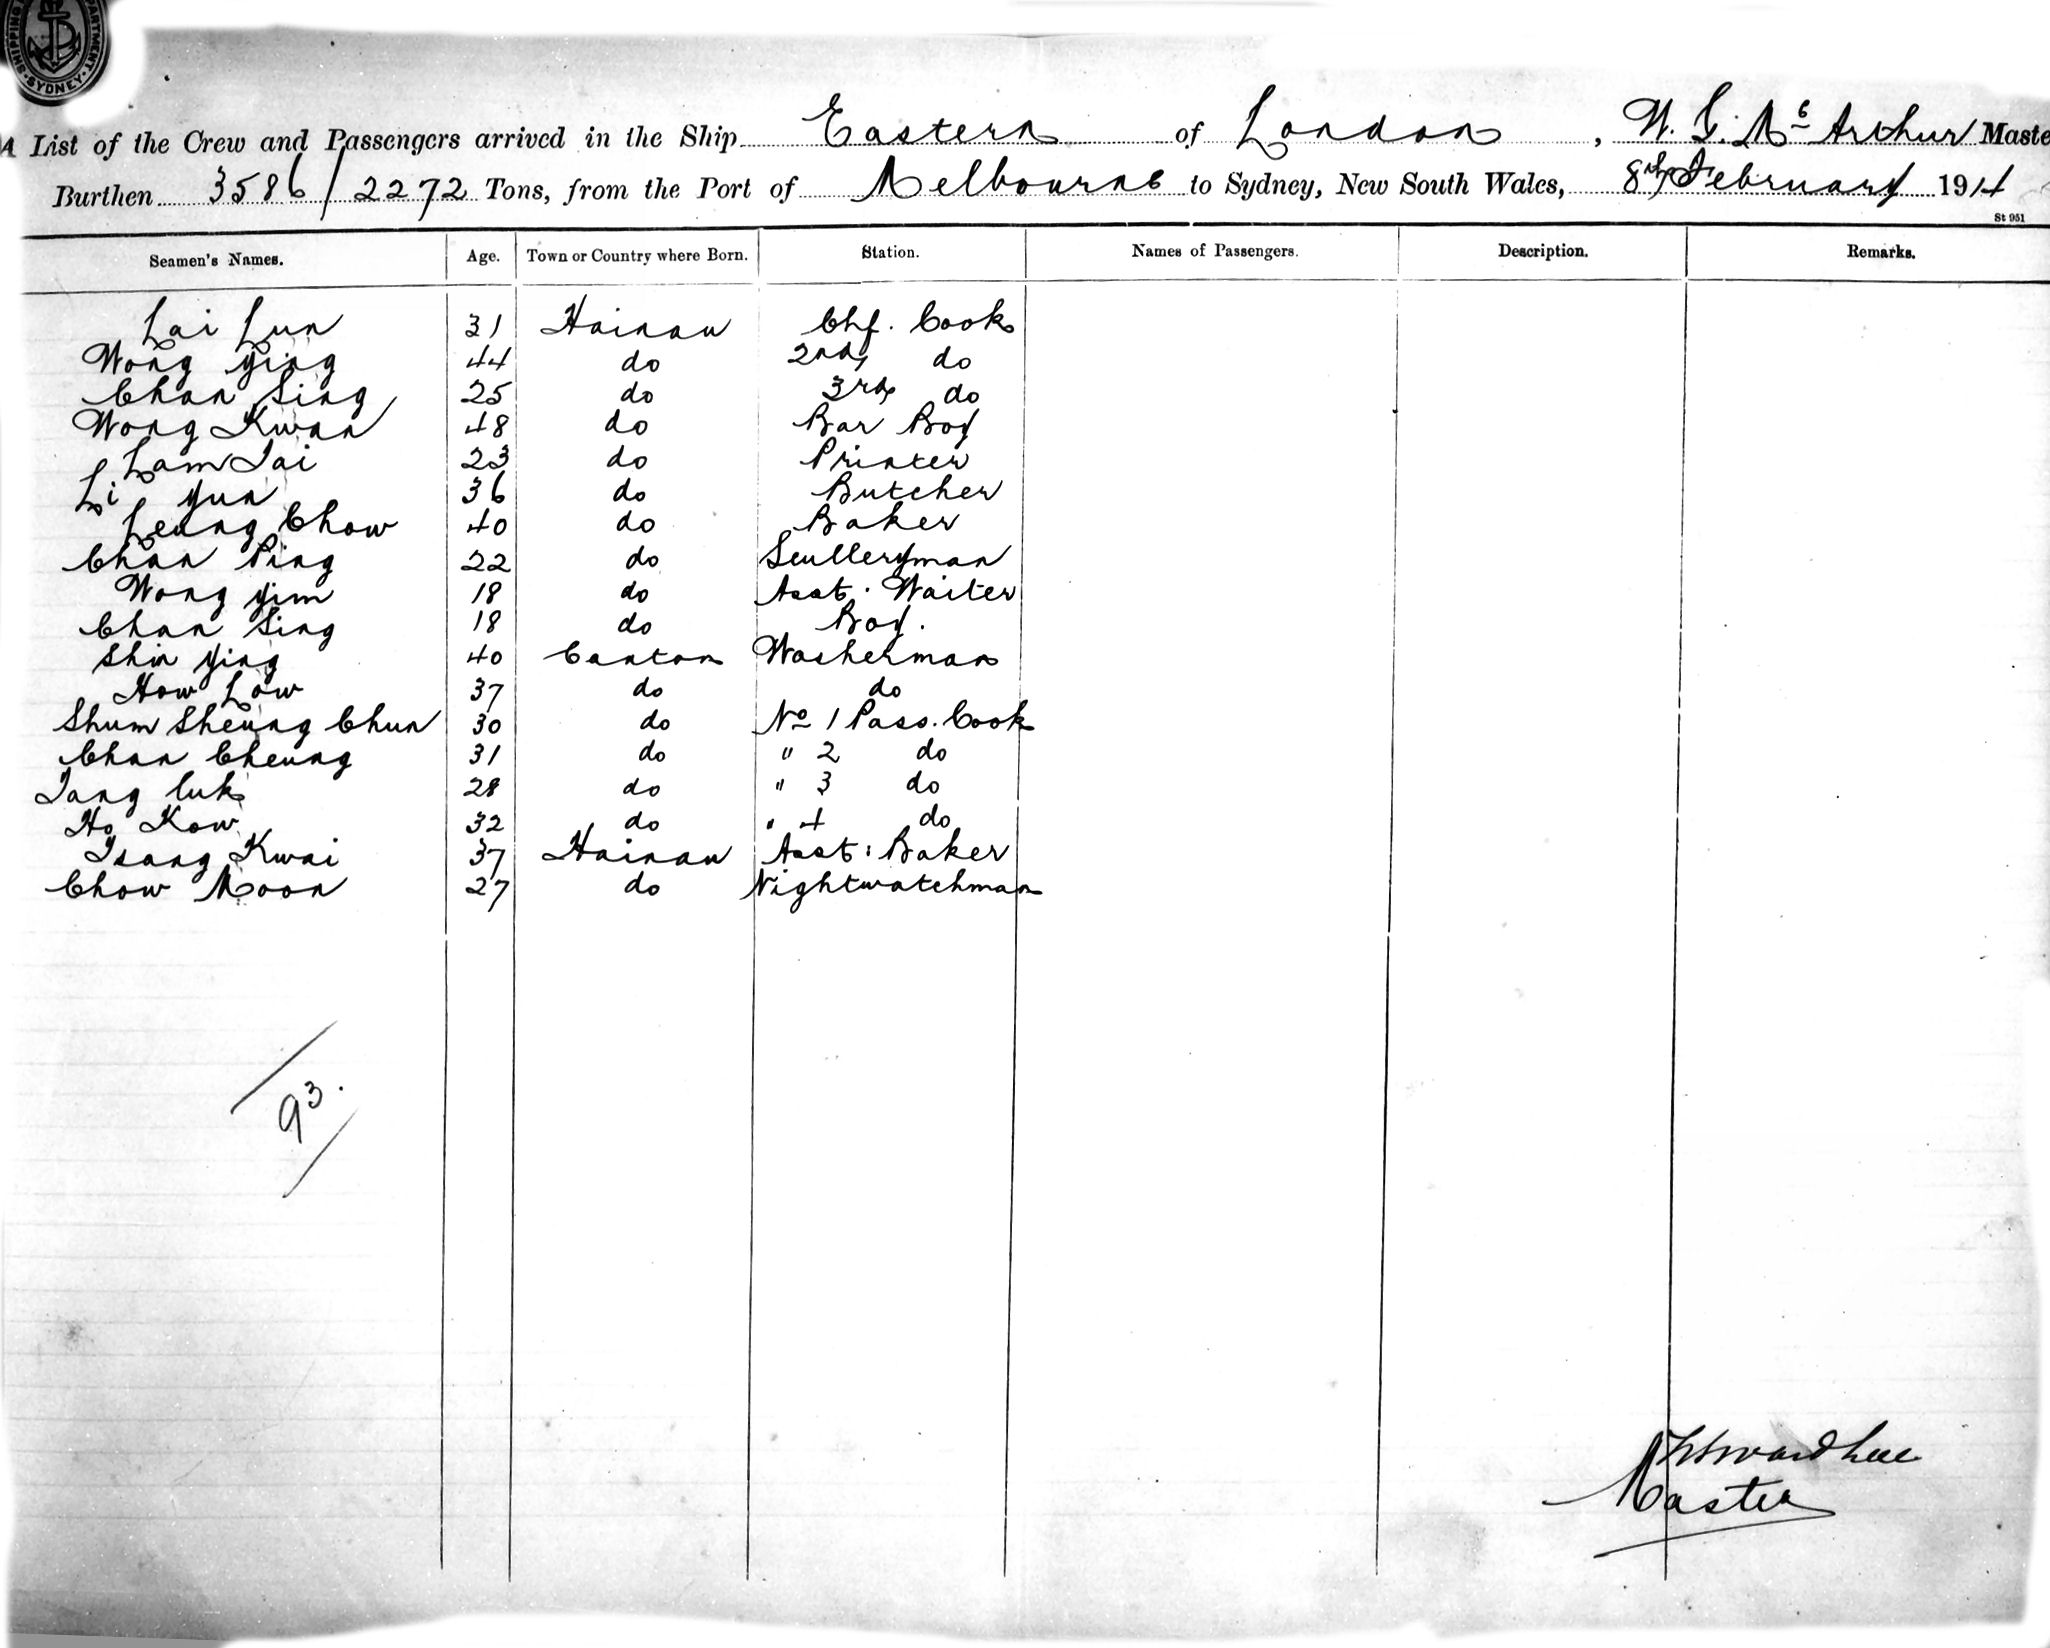 SHIPPING DEPARTMENT SYDNEY
A List of the Crew and Passengers arrived in the Ship Eastern of London, W. G. Mc Arthur Maste
Burthen 3586/2272 Tons, from the Port of Melbourne to Sydney, New South Wales, 8th February 1914
St 951
Seamen's Names. Age. Town or Country where Born. Station. Names of Passengers. Description. Remarks.
Lai Lun 31 Hainan Chf. Cook
Wong Ying 44 do 2nd do
Chan Sing 25 do 3rd do
Wong Kwan 48 do Bar Boy
Lam Tai 23 do Printer
Li Yun 36 do Butcher
Leung Chow 40 do Baker
Chan Ping 22 do Sculleryman
Wong Yim 18 do Asst. Waiter
Chan Sing 18 do Boy.
Shin Ying 40 Canton Washerman
How Low 37 do do
Shum Sheung Chun 30 do No 1 Pass. Cook
Chan Cheung 31 do " 2 do
Tang Luk 28 do " 3 do
Ho Kow 32 do " 4 do
Tsang Kwai 37 Hainan Asst: Baker
Chow Moon 27 do Nightwatchman
93.
Master